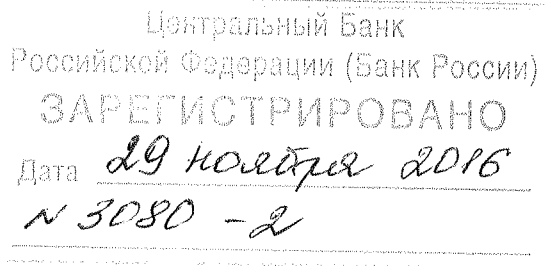 Центральный Банк
Российской Федерации (Банк России)
ЗАРЕГИСТРИРОВАНО
Дата 29 ноября 2016
N 3080 - 2